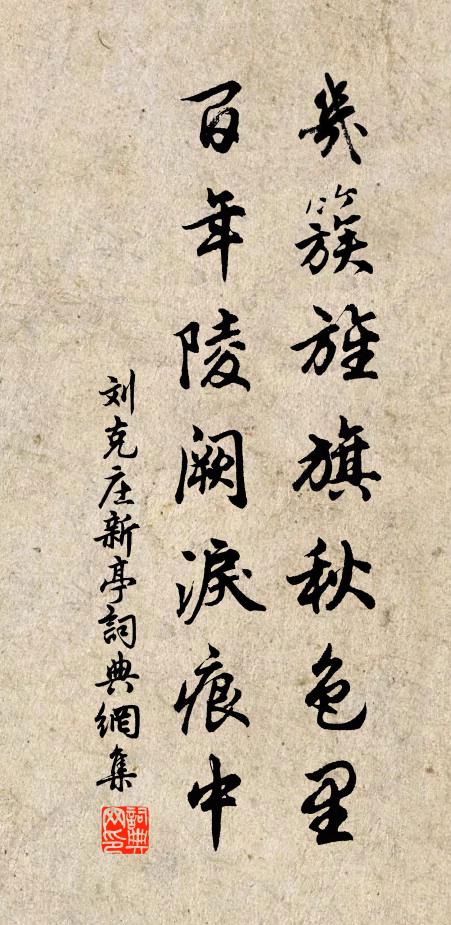 幾簇旌旗秋色里
百年陵阙淚痕中
刘克庄新亭詞典網集
詞典网印